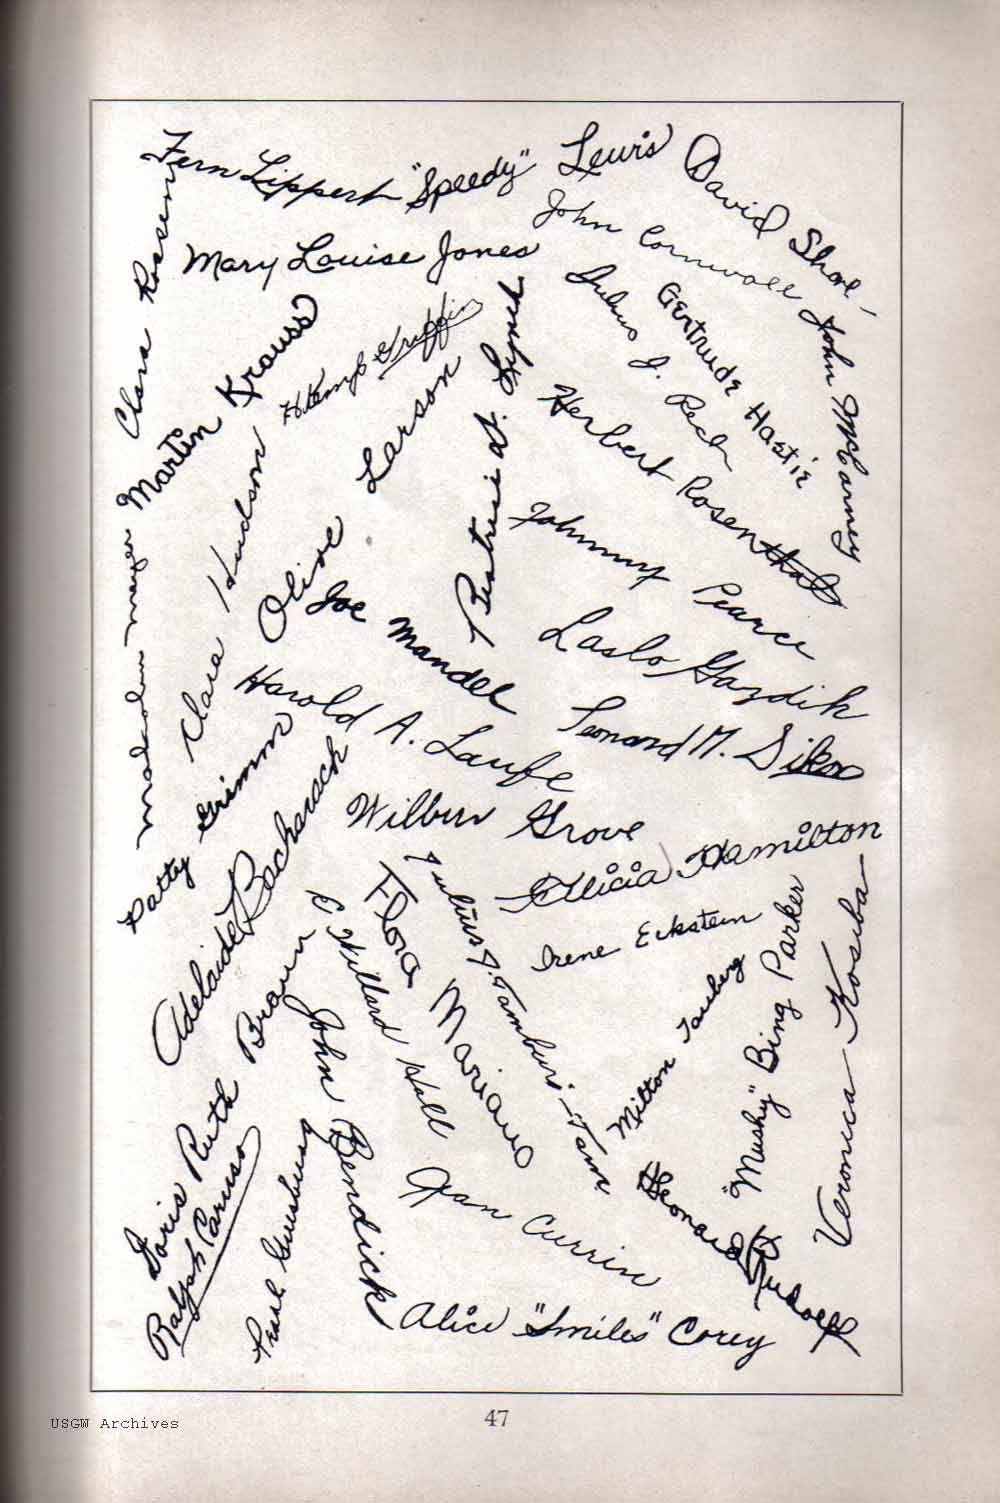 Fern Lippert
"Speedy" Lewis
David Shore
John Cornwall
Clara Rosen
Mary Louise Jones
Julius J. Rech
Gertrude Hastie
John
Martin Krauss
Griffin
Olive Larson
Beatrice D. Lynch
Herbert Rosenthal
Clara Hudson
Johnny Pearce
Joe Mandel
Laslo Gazdik
mayer
Harold A. Laufe
Leonard M.
Patty Grimm
Wilbur Grove
Alicia Hamilton
Adelaide Bacharach
Julius J. Tamburi
Flora Mariano
C. Willard Hall
Irene Eckstein
Milton Tauberg
"Mushy" Bing Parker
Veronica Kosiba
Doris Ruth Braun
John Bendick
Ralph Caruso
Pearl Guisburg
Jean Currin
Leonard Rudolph
Alice "Smiles" Corey
47
USGW Archives